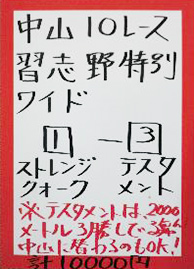 中山10レース
習志野特別
ワイド
1-3
ストレンジ テスタ
クォーク メント
※テスタメントは2000
メートル3勝している
中山に替わるのもOK!
計10000円